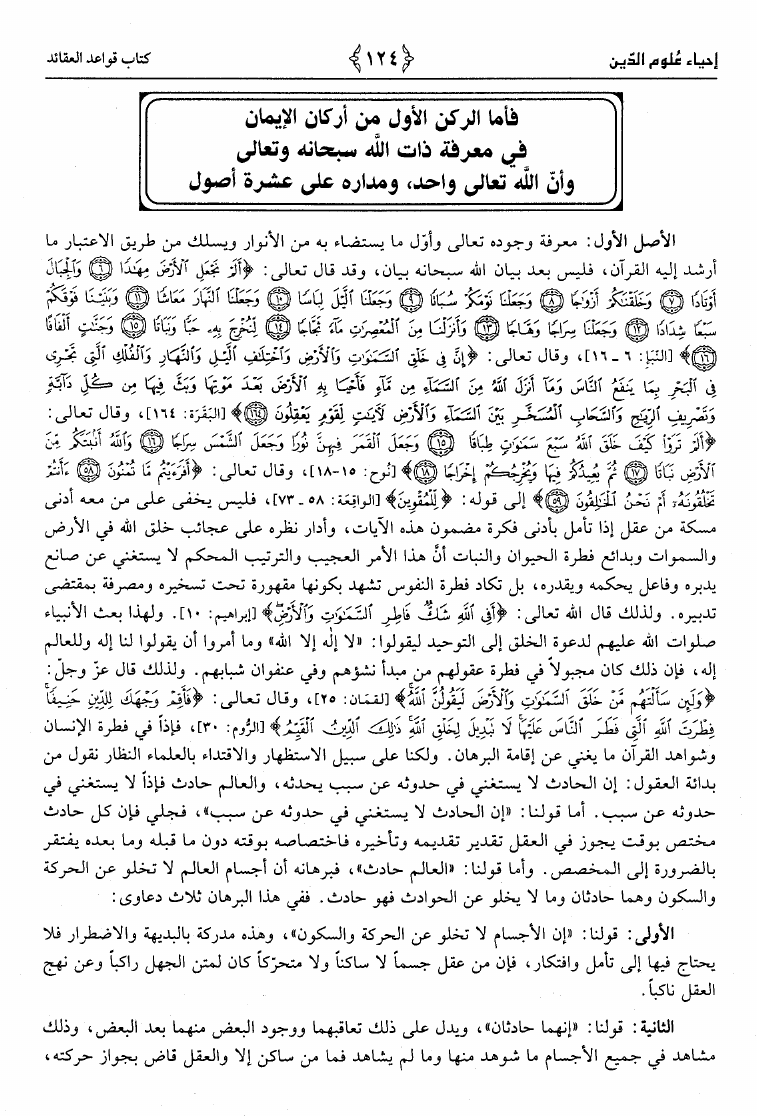 إحياء عُلوم الدّين ﴿١٢٤﴾ كتاب قواعد العقائد
فأما الركن الأول من أركان الإيمان
في معرفة ذات الله سبحانه وتعالى
وأنّ الله تعالى واحد، ومداره على عشرة أصول
الأصل الأول: معرفة وجوده تعالى وأوّل ما يستضاء به من الأنوار ويسلك من طريق الاعتبار ما
أرشد إليه القرآن، فليس بعد بيان الله سبحانه بيان، وقد قال تعالى: ﴿أَلَمْ نَجْعَلِ ٱلْأَرْضَ مِهَٰدًا ٦ وَٱلْجِبَالَ
أَوْتَادًا ٧ وَخَلَقْنَٰكُمْ أَزْوَٰجًا ٨ وَجَعَلْنَا نَوْمَكُمْ سُبَاتًا ٩ وَجَعَلْنَا ٱلَّيْلَ لِبَاسًا ١٠ وَجَعَلْنَا ٱلنَّهَارَ مَعَاشًا ١١ وَبَنَيْنَا فَوْقَكُمْ
سَبْعًا شِدَادًا ١٢ وَجَعَلْنَا سِرَاجًا وَهَّاجًا ١٣ وَأَنزَلْنَا مِنَ ٱلْمُعْصِرَٰتِ مَآءً ثَجَّاجًا ١٤ لِّنُخْرِجَ بِهِۦ حَبًّا وَنَبَاتًا ١٥ وَجَنَّٰتٍ أَلْفَافًا
١٦﴾ [النّبَإ: ٦ ـ ١٦]، وقال تعالى: ﴿إِنَّ فِى خَلْقِ ٱلسَّمَٰوَٰتِ وَٱلْأَرْضِ وَٱخْتِلَٰفِ ٱلَّيْلِ وَٱلنَّهَارِ وَٱلْفُلْكِ ٱلَّتِى تَجْرِى
فِى ٱلْبَحْرِ بِمَا يَنفَعُ ٱلنَّاسَ وَمَآ أَنزَلَ ٱللَّهُ مِنَ ٱلسَّمَآءِ مِن مَّآءٍ فَأَحْيَا بِهِ ٱلْأَرْضَ بَعْدَ مَوْتِهَا وَبَثَّ فِيهَا مِن كُلِّ دَآبَّةٍ
وَتَصْرِيفِ ٱلرِّيَٰحِ وَٱلسَّحَابِ ٱلْمُسَخَّرِ بَيْنَ ٱلسَّمَآءِ وَٱلْأَرْضِ لَءَايَٰتٍ لِّقَوْمٍ يَعْقِلُونَ ١٦٤﴾ [البَقَرَة: ١٦٤]، وقال تعالى:
﴿أَلَمْ تَرَوْا۟ كَيْفَ خَلَقَ ٱللَّهُ سَبْعَ سَمَٰوَٰتٍ طِبَاقًا ١٥ وَجَعَلَ ٱلْقَمَرَ فِيهِنَّ نُورًا وَجَعَلَ ٱلشَّمْسَ سِرَاجًا ١٦ وَٱللَّهُ أَنۢبَتَكُم مِّنَ
ٱلْأَرْضِ نَبَاتًا ١٧ ثُمَّ يُعِيدُكُمْ فِيهَا وَيُخْرِجُكُمْ إِخْرَاجًا ١٨﴾ [نُوح: ١٥-١٨]، وقال تعالى: ﴿أَفَرَءَيْتُم مَّا تُمْنُونَ ٥٨ ءَأَنتُمْ
تَخْلُقُونَهُۥٓ أَمْ نَحْنُ ٱلْخَٰلِقُونَ ٥٩﴾ إلى قوله: ﴿لِّلْمُقْوِينَ﴾ [الواقِعَة: ٥٨ ـ ٧٣]، فليس يخفى على من معه أدنى
مسكة من عقل إذا تأمل بأدنى فكرة مضمون هذه الآيات، وأدار نظره على عجائب خلق الله في الأرض
والسموات وبدائع فطرة الحيوان والنبات أنَّ هذا الأمر العجيب والترتيب المحكم لا يستغني عن صانع
يدبره وفاعل يحكمه ويقدره، بل تكاد فطرة النفوس تشهد بكونها مقهورة تحت تسخيره ومصرفة بمقتضى
تدبيره. ولذلك قال الله تعالى: ﴿أَفِى ٱللَّهِ شَكٌّ فَاطِرِ ٱلسَّمَٰوَٰتِ وَٱلْأَرْضِ﴾ [إبراهيم: ١٠]. ولهذا بعث الأنبياء
صلوات الله عليهم لدعوة الخلق إلى التوحيد ليقولوا: «لا إلٰه إلا الله» وما أمروا أن يقولوا لنا إله وللعالم
إله، فإن ذلك كان مجبولاً في فطرة عقولهم من مبدأ نشؤهم وفي عنفوان شبابهم. ولذلك قال عزّ وجلّ:
﴿وَلَئِن سَأَلْتَهُم مَّنْ خَلَقَ ٱلسَّمَٰوَٰتِ وَٱلْأَرْضَ لَيَقُولُنَّ ٱللَّهُ﴾ [لقمَان: ٢٥]، وقال تعالى: ﴿فَأَقِمْ وَجْهَكَ لِلدِّينِ حَنِيفًا
فِطْرَتَ ٱللَّهِ ٱلَّتِى فَطَرَ ٱلنَّاسَ عَلَيْهَا لَا تَبْدِيلَ لِخَلْقِ ٱللَّهِ ذَٰلِكَ ٱلدِّينُ ٱلْقَيِّمُ﴾ [الرُّوم: ٣٠]، فإذاً في فطرة الإنسان
وشواهد القرآن ما يغني عن إقامة البرهان. ولكنا على سبيل الاستظهار والاقتداء بالعلماء النظار نقول من
بدائة العقول: إن الحادث لا يستغني في حدوثه عن سبب يحدثه، والعالم حادث فإذاً لا يستغني في
حدوثه عن سبب. أما قولنا: «إن الحادث لا يستغني في حدوثه عن سبب»، فجلي فإن كل حادث
مختص بوقت يجوز في العقل تقدير تقديمه وتأخيره فاختصاصه بوقته دون ما قبله وما بعده يفتقر
بالضرورة إلى المخصص. وأما قولنا: «العالم حادث»، فبرهانه أن أجسام العالم لا تخلو عن الحركة
والسكون وهما حادثان وما لا يخلو عن الحوادث فهو حادث. ففي هذا البرهان ثلاث دعاوى:
الأولى: قولنا: «إن الأجسام لا تخلو عن الحركة والسكون»، وهذه مدركة بالبديهة والاضطرار فلا
يحتاج فيها إلى تأمل وافتكار، فإن من عقل جسماً لا ساكناً ولا متحرّكاً كان لمتن الجهل راكباً وعن نهج
العقل ناكباً.
الثانية: قولنا: «إنهما حادثان»، ويدل على ذلك تعاقبهما ووجود البعض منهما بعد البعض، وذلك
مشاهد في جميع الأجسام ما شوهد منها وما لم يشاهد فما من ساكن إلا والعقل قاض بجواز حركته،